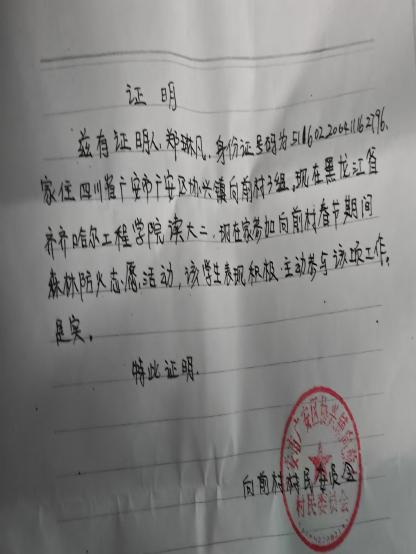 证明
兹有证明人郑琳凡，身份证号码为511602200411162796，
家住四川省广安市广安区协兴镇向前村3组，现在黑龙江省
齐齐哈尔工程学院读大二，现在家参加向前村春节期间
森林防火志愿活动，该学生表现积极，主动参与该项工作。
是实。
特此证明.
向前村村民委员会
村民委员会